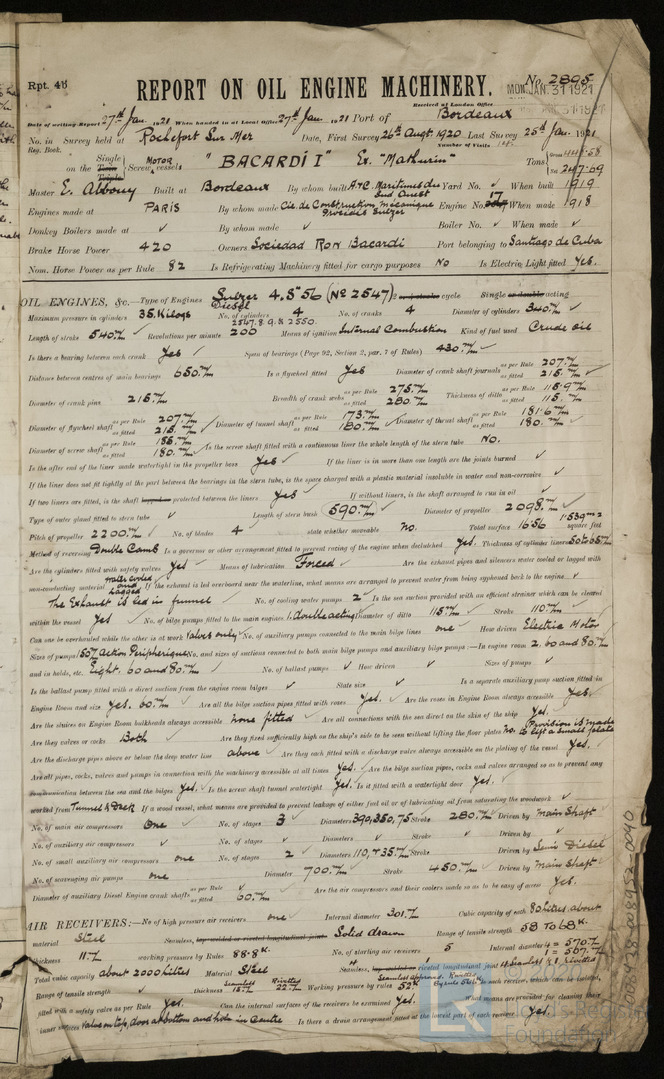 Rpt. 4b
REPORT ON OIL ENGINE MACHINERY.
No. 2895
MON. JAN. 31 1921
Received at London Office
Date of writing Report 27th Jan. 1921 When handed in at Local Office 27th Jan. 1921 Port of Bordeaux
No. in Survey held at Rochefort Sur Mer Date, First Survey 26th Augt. 1920 Last Survey 25th Jan. 1921
Reg. Book. Number of Visits
on the Single Twin Triple Screw vessel MOTOR "BACARDI I" Ex. "Mathurin" Tons Gross 444.58 Net 247.69
Master E. Abboury Built at Bordeaux By whom built A & C. Maritimes du Sud Ouest Yard No. ✓ When built 1919
Engines made at PARIS By whom made Cie. de Construction, mécanique Procédés Sulzer Engine No. 17 When made 1918
Donkey Boilers made at ✓ By whom made ✓ Boiler No. ✓ When made ✓
Brake Horse Power 420 Owners Sociedad Ron Bacardi Port belonging to Santiago de Cuba
Nom. Horse Power as per Rule 82 Is Refrigerating Machinery fitted for cargo purposes No Is Electric Light fitted Yes.
OIL ENGINES, &c.—Type of Engines Sulzer Diesel 4.S 56 (No 2547) 2 or 4 stroke cycle Single or double acting
Maximum pressure in cylinders 35 Kilogs No. of cylinders 4 No. of cranks 4 Diameter of cylinders 340 m/m
2547.8.9. & 2550.
Length of stroke 540 m/m Revolutions per minute 200 Means of ignition Internal Combustion Kind of fuel used Crude oil
Is there a bearing between each crank Yes Span of bearings (Page 92, Section 2, par. 7 of Rules) 430 m/m
Distance between centres of main bearings 650 m/m Is a flywheel fitted Yes Diameter of crank shaft journals as per Rule 207 m/m as fitted 215 m/m
Diameter of crank pins 215 m/m Breadth of crank webs as per Rule 275 m/m as fitted 280 m/m Thickness of ditto as per Rule 115.9 m/m as fitted 115 m/m
Diameter of flywheel shaft as per Rule 207 m/m as fitted 215 m/m Diameter of tunnel shaft as per Rule 173 m/m as fitted 180 m/m Diameter of thrust shaft as per Rule 181.6 m/m as fitted 180 m/m
Diameter of screw shaft as per Rule 185 m/m as fitted 180 m/m Is the screw shaft fitted with a continuous liner the whole length of the stern tube No.
Is the after end of the liner made watertight in the propeller boss Yes If the liner is in more than one length are the joints burned ✓
If the liner does not fit tightly at the part between the bearings in the stern tube, is the space charged with a plastic material insoluble in water and non-corrosive ✓
If two liners are fitted, is the shaft lapped or protected between the liners Yes If without liners, is the shaft arranged to run in oil ✓
Type of outer gland fitted to stern tube ✓ Length of stern bush 590 m/m Diameter of propeller 2098 m/m
Pitch of propeller 2200 m/m No. of blades 4 state whether moveable No. Total surface 1656 1.539 m2 square feet
Method of reversing Double Camb Is a governor or other arrangement fitted to prevent racing of the engine when declutched Yes. Thickness of cylinder liners 50 to 65 m/m
Are the cylinders fitted with safety valves Yes Means of lubrication Forced Are the exhaust pipes and silencers water cooled or lagged with
non-conducting material water cooled and lagged If the exhaust is led overboard near the waterline, what means are arranged to prevent water from being syphoned back to the engine ✓
The Exhaust is led in funnel No. of cooling water pumps 2 Is the sea suction provided with an efficient strainer which can be cleared
within the vessel Yes No. of bilge pumps fitted to the main engines 1 double acting Diameter of ditto 115 m/m Stroke 110 m/m
Can one be overhauled while the other is at work Valves only No. of auxiliary pumps connected to the main bilge lines one How driven Electric Motor
Sizes of pumps 150 T action Peripherique No. and sizes of suctions connected to both main bilge pumps and auxiliary bilge pumps:—In engine room 2, 60 and 80 m/m
and in holds, etc. Eight, 60 and 80 m/m No. of ballast pumps ✓ How driven ✓ Sizes of pumps ✓
Is the ballast pump fitted with a direct suction from the engine room bilges ✓ State size ✓ Is a separate auxiliary pump suction fitted in
Engine Room and size Yes. 60 m/m Are all the bilge suction pipes fitted with roses Yes. Are the roses in Engine Room always accessible Yes
Are the sluices on Engine Room bulkheads always accessible none fitted Are all connections with the sea direct on the skin of the ship Yes.
Are they valves or cocks Both Are they fixed sufficiently high on the ship's side to be seen without lifting the floor plates No. Provision is made to lift a small plate
Are the discharge pipes above or below the deep water line above Are they each fitted with a discharge valve always accessible on the plating of the vessel Yes.
Are all pipes, cocks, valves and pumps in connection with the machinery accessible at all times Yes. Are the bilge suction pipes, cocks and valves arranged so as to prevent any
communication between the sea and the bilges Yes. Is the screw shaft tunnel watertight Yes. Is it fitted with a watertight door Yes.
worked from Tunnel & Deck If a wood vessel, what means are provided to prevent leakage of either fuel oil or of lubricating oil from saturating the woodwork ✓
No. of main air compressors One No. of stages 3 Diameters 390, 350, 75 Stroke 280 m/m Driven by Main Shaft
No. of auxiliary air compressors ✓ No. of stages ✓ Diameters ✓ Stroke ✓ Driven by ✓
No. of small auxiliary air compressors one No. of stages 2 Diameters 110, & 35 m/m Stroke Driven by Semi Diesel
No. of scavenging air pumps one Diameter 700 m/m Stroke 450 m/m Driven by Main Shaft
Diameter of auxiliary Diesel Engine crank shafts as per Rule ✓ as fitted 60 m/m Are the air compressors and their coolers made so as to be easy of access Yes.
AIR RECEIVERS:—No. of high pressure air receivers one Internal diameter 301 m/m Cubic capacity of each 80 litres about
material Steel Seamless, lap welded or riveted longitudinal joint Solid drawn Range of tensile strength 58 to 68 K.
thickness 11 m/m working pressure by Rules 88.8 K. No. of starting air receivers 5 Internal diameter 4 = 570 m/m 1 = 567.7 m/m
Total cubic capacity about 2000 litres Material Steel Seamless, lap welded or riveted longitudinal joint 4 Seamless & 1 Rivetted
Range of tensile strength ✓ thickness Seamless Rivetted 22 m/m Working pressure by rules 52 K each receiver, which can be isolated,
fitted with a safety valve as per Rule Yes. Can the internal surfaces of the receivers be examined Yes. What means are provided for cleaning their
inner surfaces Valve on top, door at bottom and hole in Centre Is there a drain arrangement fitted at the lowest part of each receiver Yes.
Lloyd's Register
Foundation